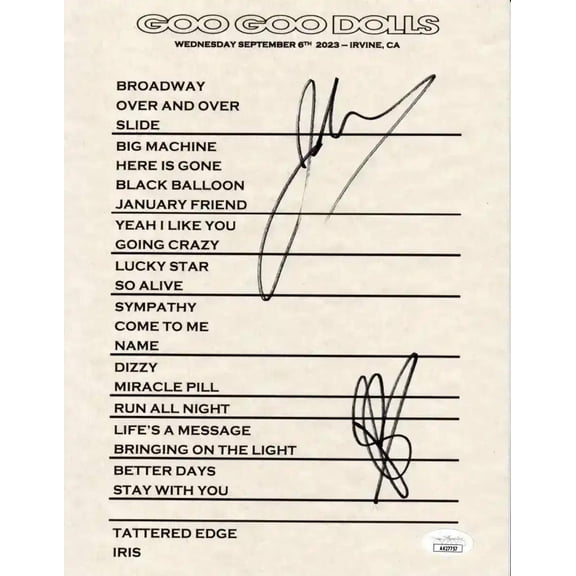 GOO GOO DOLLS
WEDNESDAY SEPTEMBER 6TH 2023 – IRVINE, CA
BROADWAY
OVER AND OVER
SLIDE
BIG MACHINE
HERE IS GONE
BLACK BALLOON
JANUARY FRIEND
YEAH I LIKE YOU
GOING CRAZY
LUCKY STAR
SO ALIVE
SYMPATHY
COME TO ME
NAME
DIZZY
MIRACLE PILL
RUN ALL NIGHT
LIFE'S A MESSAGE
BRINGING ON THE LIGHT
BETTER DAYS
STAY WITH YOU
TATTERED EDGE
IRIS
AK27757